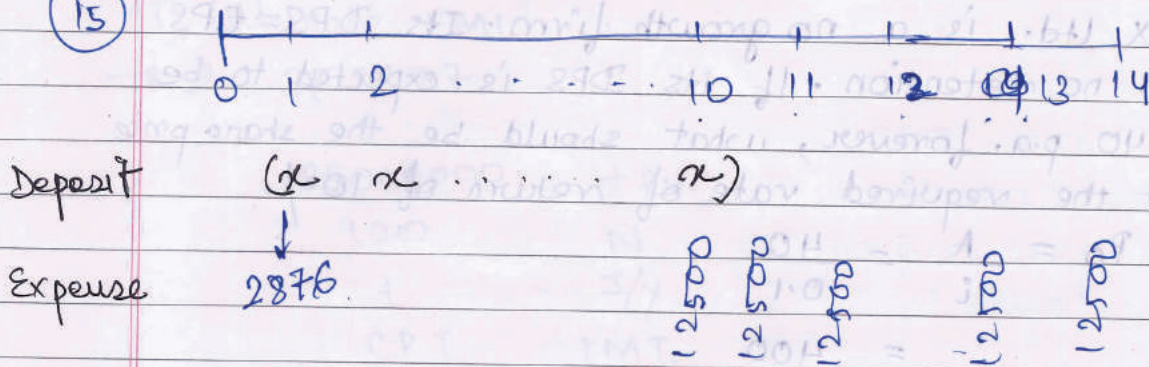 15
0 1 2 . . . . 10 11 12 13 14
Deposit (x x . . . . . . x)
Expense 2876. 12500 12500 12500 12500 12500